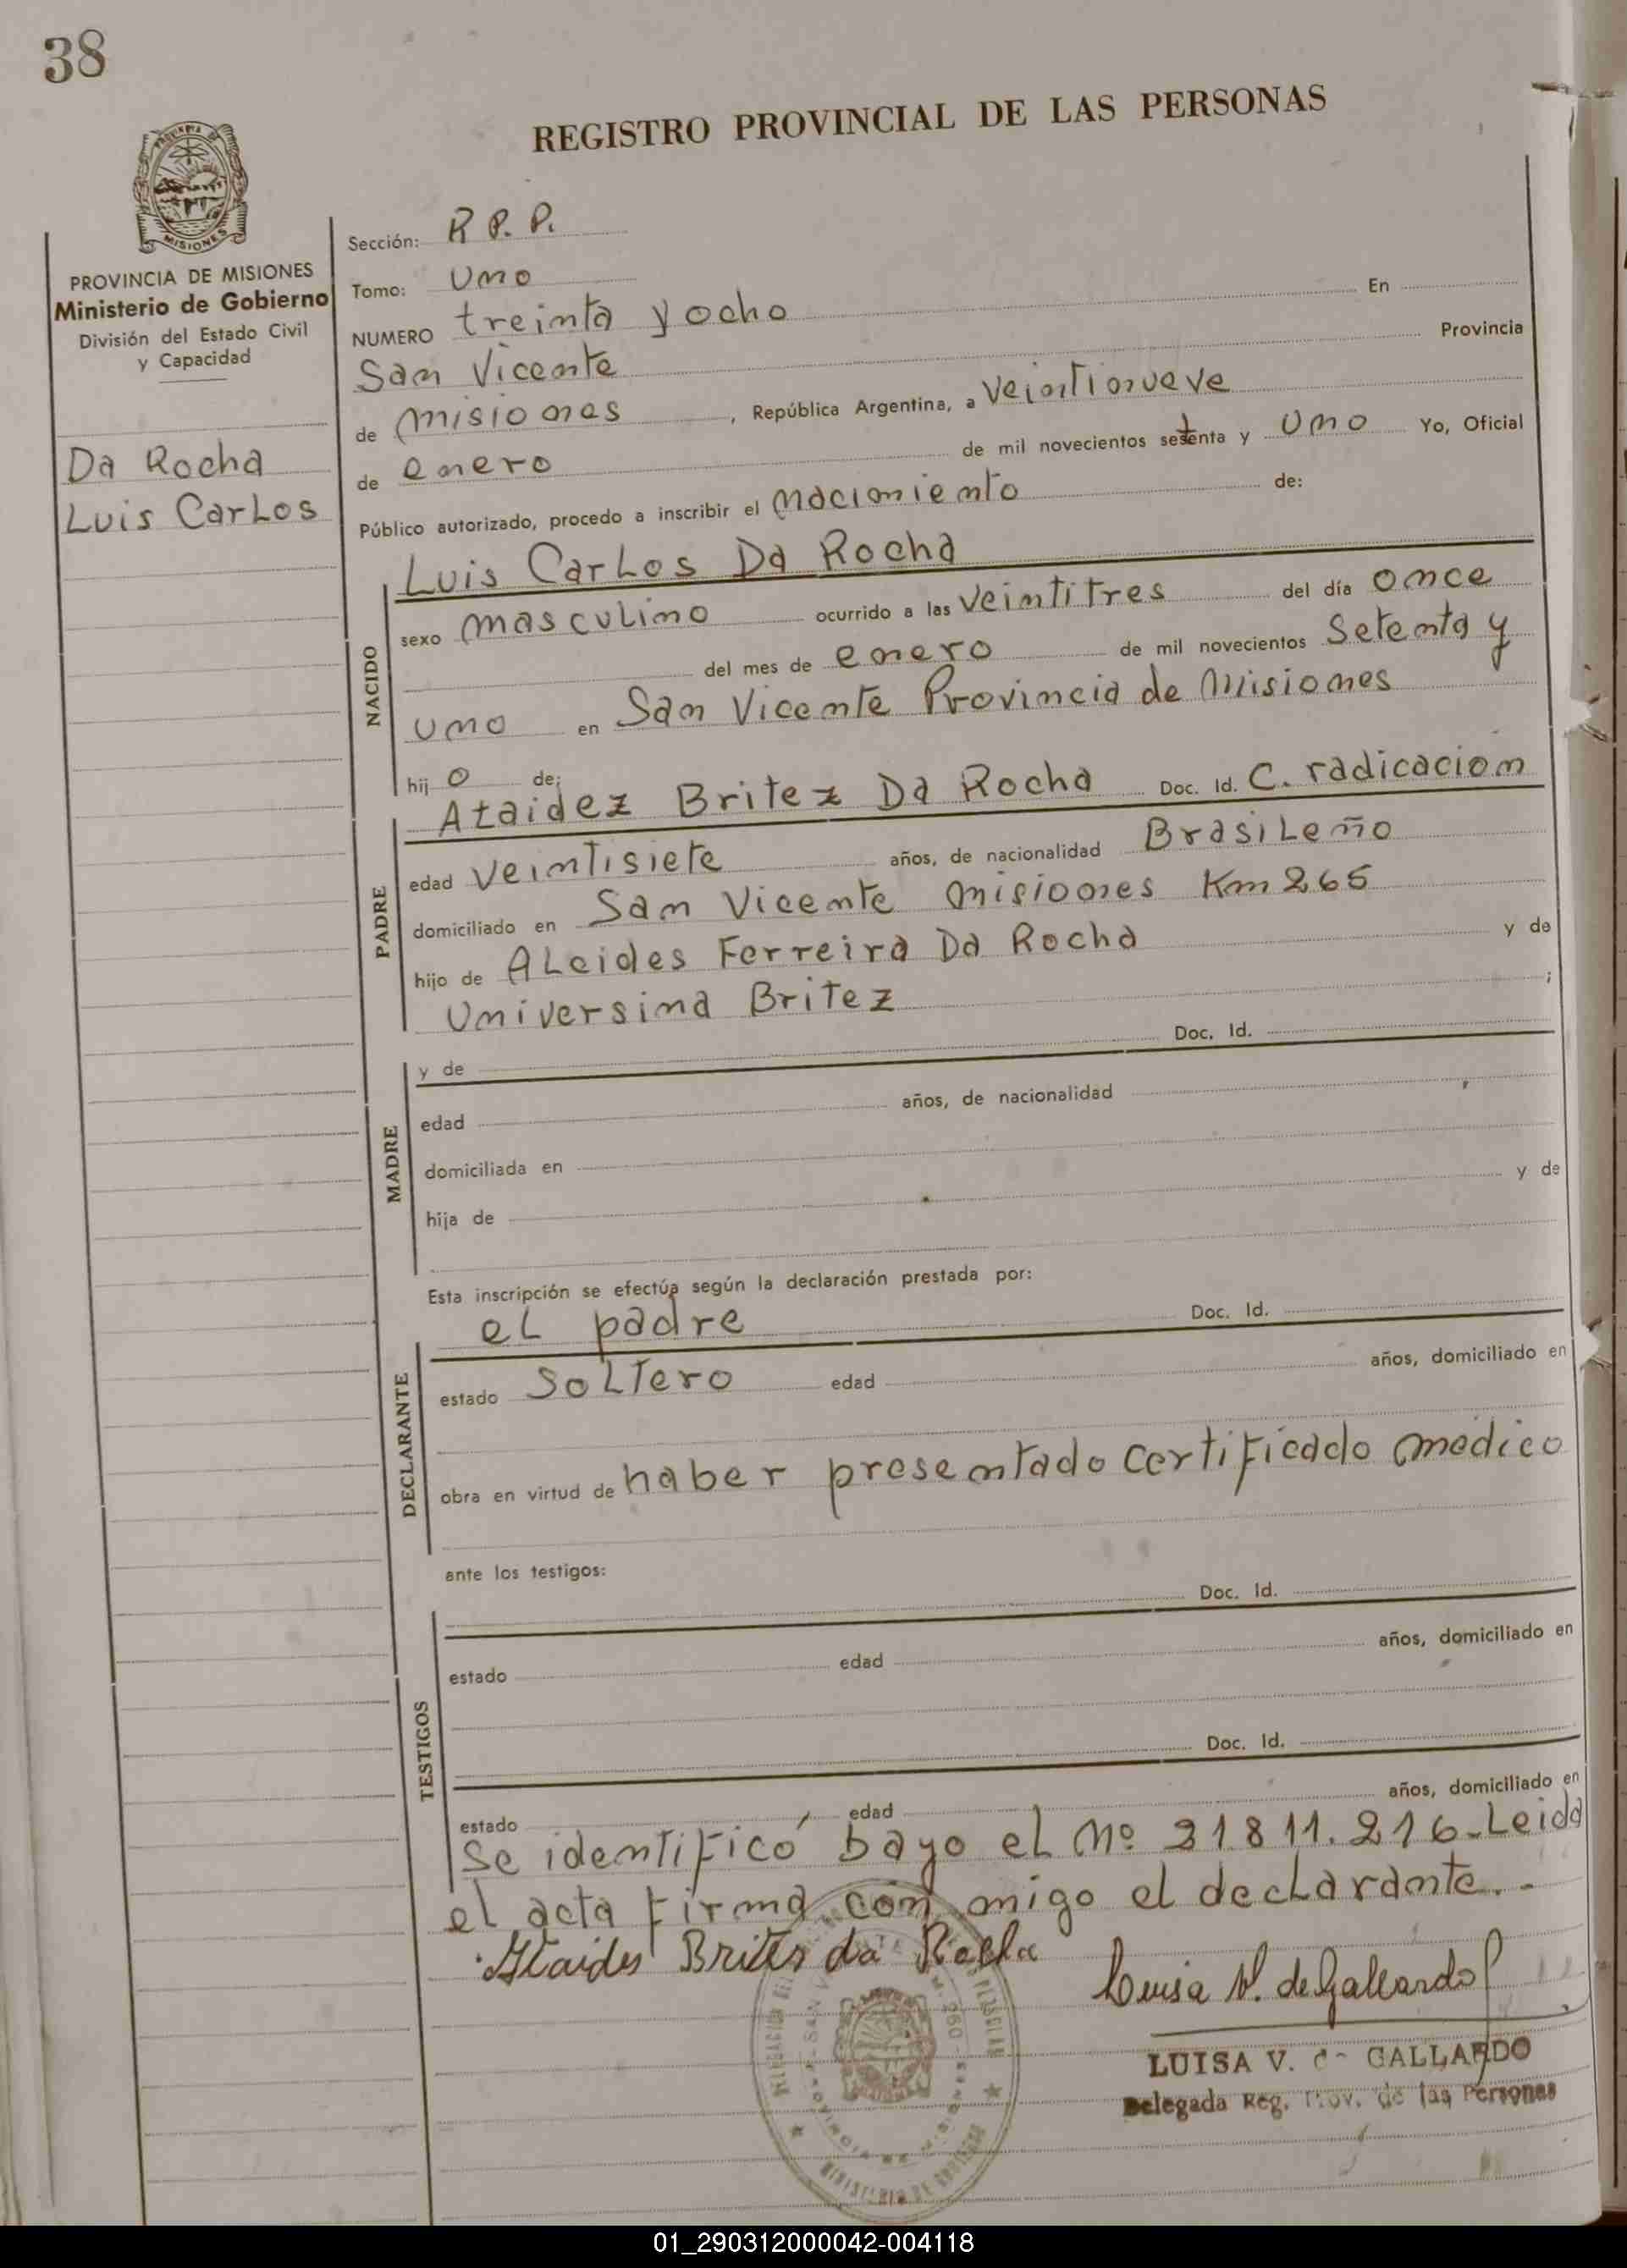 38
REGISTRO PROVINCIAL DE LAS PERSONAS
MISIONES
PROVINCIA DE MISIONES
Ministerio de Gobierno
División del Estado Civil
y Capacidad
Da Rocha
Luis Carlos
Sección: R P. P.
Tomo: Uno
NUMERO treinta y ocho En
San Vicente Provincia
de misiones , República Argentina, a Veintinueve
de enero de mil novecientos setenta y Uno Yo, Oficial
Público autorizado, procedo a inscribir el nacimiento de:
NACIDO
Luis Carlos Da Rocha
sexo masculino ocurrido a las Veintitres del día once
del mes de enero de mil novecientos Setenta y
uno en San Vicente Provincia de Misiones
hij o de:
PADRE
Ataidez Britez Da Rocha Doc. Id. C. radicacion
edad Veintisiete años, de nacionalidad Brasileño
domiciliado en San Vicente misiones Km 265
hijo de Alcides Ferreira Da Rocha y de
Universina Britez ;
MADRE
y de Doc. Id.
edad años, de nacionalidad
domiciliada en
hija de y de
Esta inscripción se efectúa según la declaración prestada por:
DECLARANTE
el padre Doc. Id.
estado Soltero edad años, domiciliado en
obra en virtud de haber presentado certificado medico
ante los testigos:
TESTIGOS
Doc. Id.
estado edad años, domiciliado en
Doc. Id.
estado edad años, domiciliado en
Se identificó bayo el Nº 31811.216-Leida
el acta firma con migo el declarante.-
Ataides Brites da Rocha
Luisa V. de Gallardo
LUISA V. de GALLARDO
Delegada Reg. Prov. de las Personas
01_290312000042-004118